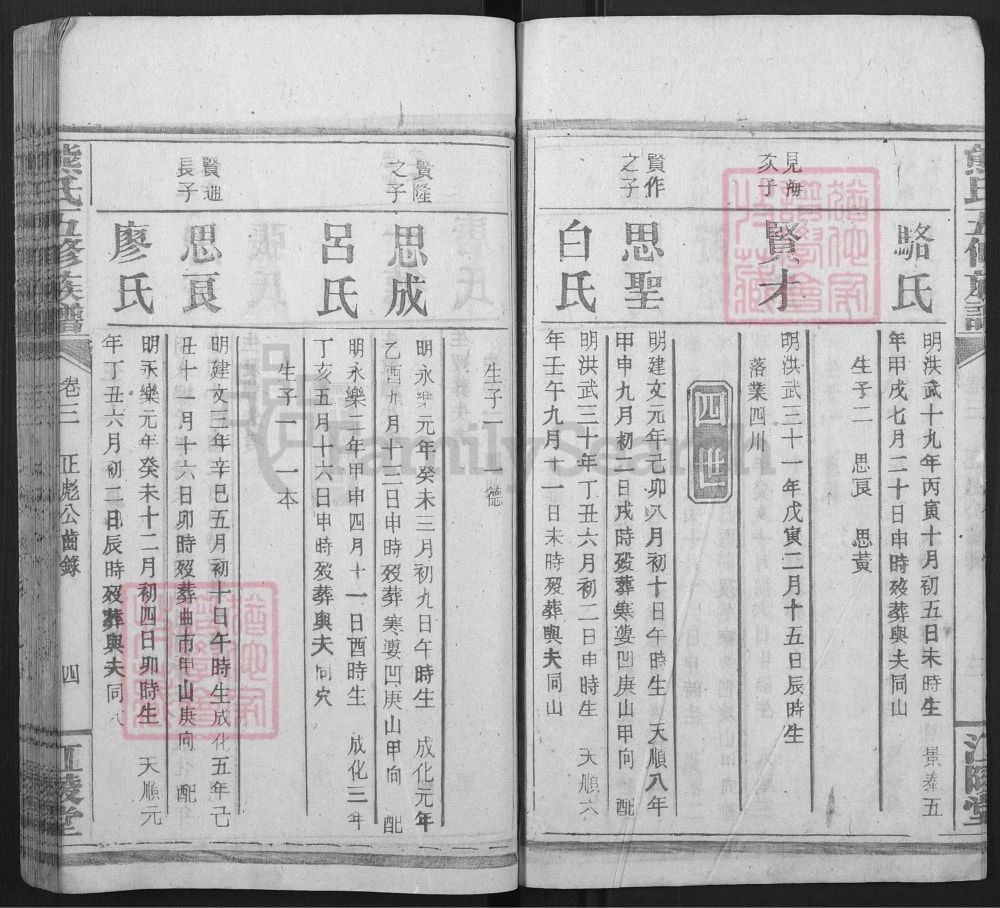 駱氏
明洪武十九年丙寅十月初五日未時生 景泰五
年甲戌七月二十日申時歿葬與夫同山
生子二 思艮 思黃
見海
次子
賢才
明洪武三十一年戊寅二月十五日辰時生
落業四川
四世
賢作
之子
思聖
明建文元年己卯八月初十日午時生 天順八年
甲申九月初一日戌時歿葬寒婆凹庚山甲向 配
白氏
明洪武三十年丁丑六月初二日申時生 天順六
年壬午九月十一日未時歿葬與夫同山
生子一 一德
賢隆
之子
思成
明永樂元年癸未三月初九日午時生 成化元年
乙酉九月十三日申時歿葬寒婆凹庚山甲向 配
呂氏
明永樂二年甲申四月十一日酉時生 成化三年
丁亥五月十六日申時歿葬與夫同穴
生子一 一本
賢通
長子
思艮
明建文三年辛巳五月初十日午時生成化五年己
丑十一月十六日卯時歿葬曲市甲山庚向 配
廖氏
明永樂元年癸未十二月初四日卯時生 天順元
年丁丑六月初三日辰時歿葬與夫同穴
熊氏五修族譜
卷三 正彪公齒錄
四
江陵堂
熊氏五修族譜
江陵堂
FamilySearch